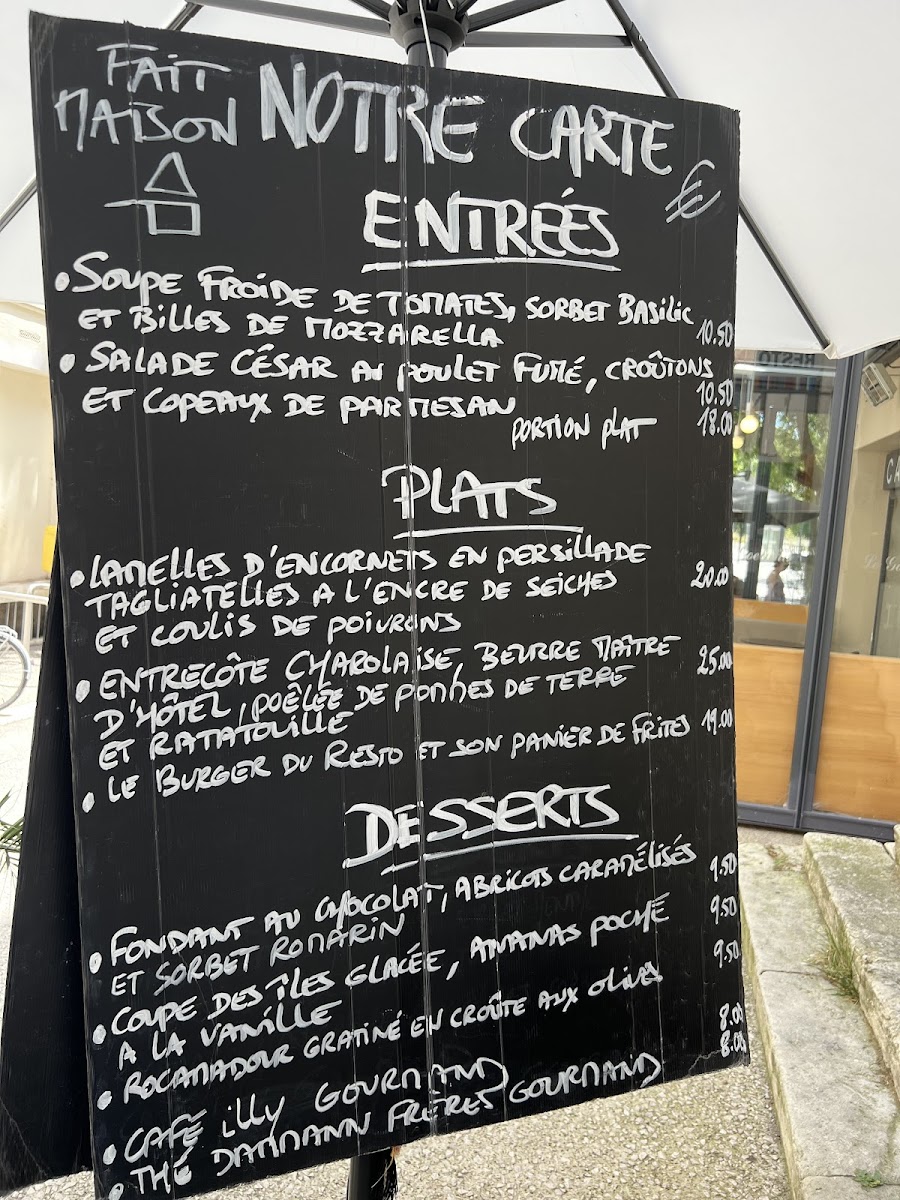 FAIT
MAISON
NOTRE CARTE
€
ENTREÉS
• SOUPE FROIDE DE TOMATES, SORBET BASILIC
ET BILLES DE MOZZARELLA 10.50
• SALADE CÉSAR AU POULET FUMÉ, CROÛTONS
ET COPEAUX DE PARMESAN 10.50
PORTION PLAT 18.00
PLATS
• LAMELLES D'ENCORNETS EN PERSILLADE
TAGLIATELLES A L'ENCRE DE SEICHES 20.00
ET COULIS DE POIVRONS
• ENTRECÔTE CHAROLAISE, BEURRE MAÎTRE 25.00
D'HÔTEL, POÊLÉE DE POMMES DE TERRE
ET RATATOUILLE
• LE BURGER DU RESTO ET SON PANIER DE FRITES 19.00
DESSERTS
• FONDANT AU CHOCOLAT, ABRICOTS CARAMÉLISÉS 9.50
ET SORBET ROMARIN
• COUPE DES ÎLES GLACÉE, ANANAS POCHÉ 9.50
A LA VANILLE
• ROCAMADOUR GRATINÉ EN CROÛTE AUX OLIVES 9.50
• CAFÉ ILLY GOURMAND 8.00
• THÉ DAMMANN FRÈRES GOURMAND 8.00
RESTO